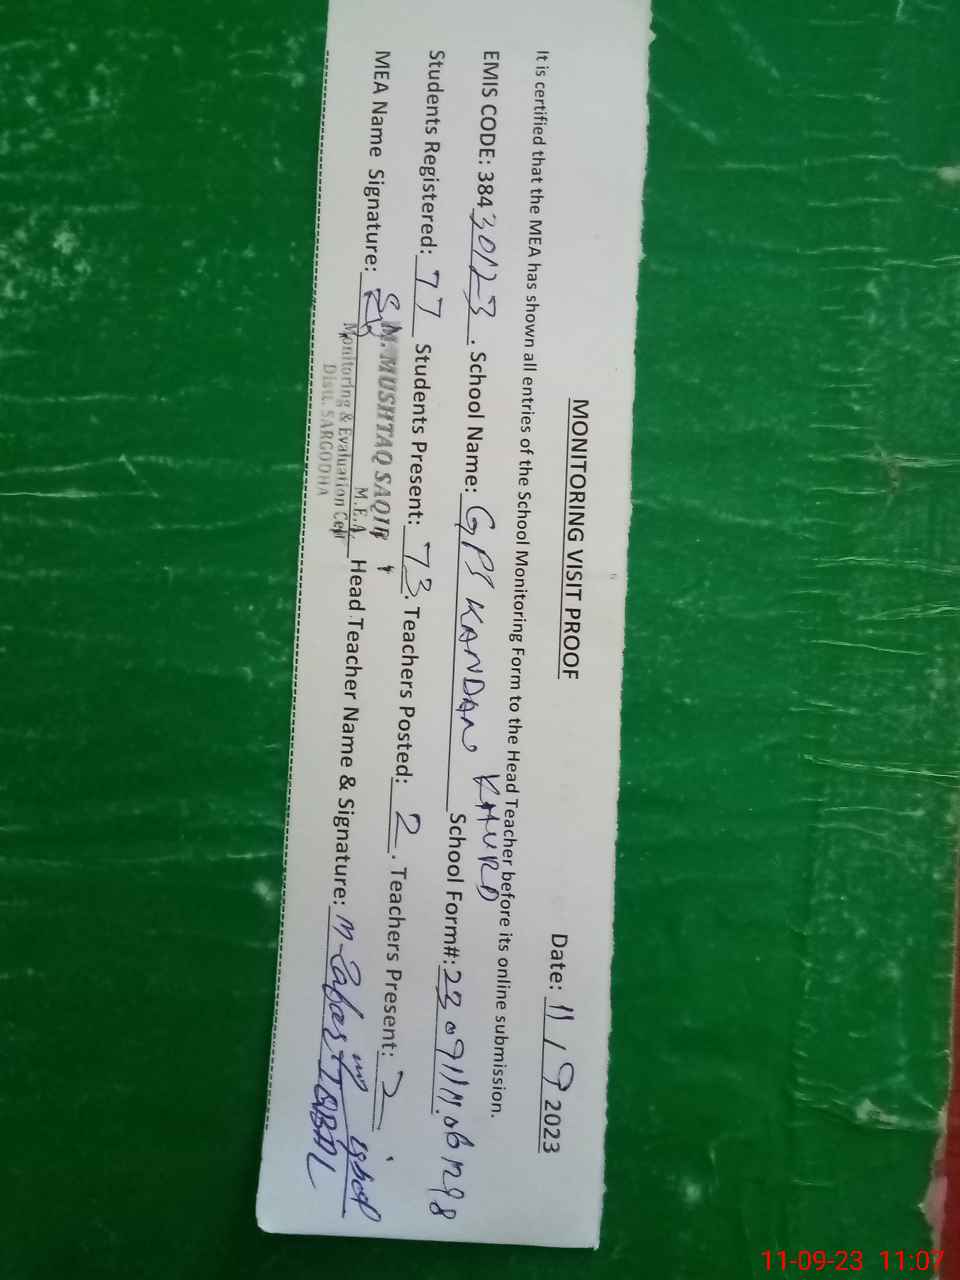 MONITORING VISIT PROOF
Date: 11/9 2023
It is certified that the MEA has shown all entries of the School Monitoring Form to the Head Teacher before its online submission.
EMIS CODE: 38430123. School Name: GPS KANDAN KHURD School Form#:
Students Registered: 77 Students Present: 73. Teachers Posted: 2. Teachers Present: 2
MEA Name Signature: Head Teacher Name & Signature: IQBAL
M. MUSHTAQ SAQIB
M.E.A.
Monitoring & Evaluation Cell
Distt. SARGODHA
11-09-23 11:07